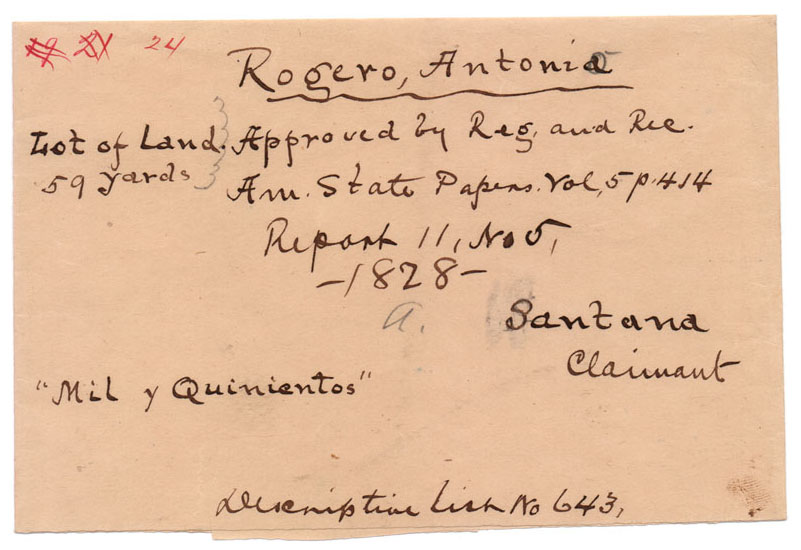 24
Rogero, Antonio
Lot of Land. Approved by Reg. and Rec.
59 yards Am. State Papers. Vol, 5 p. 414
Report 11, No 5,
-1828-
a.
Santana
Claimant
"Mil y Quinientos"
Descriptive List No 643,